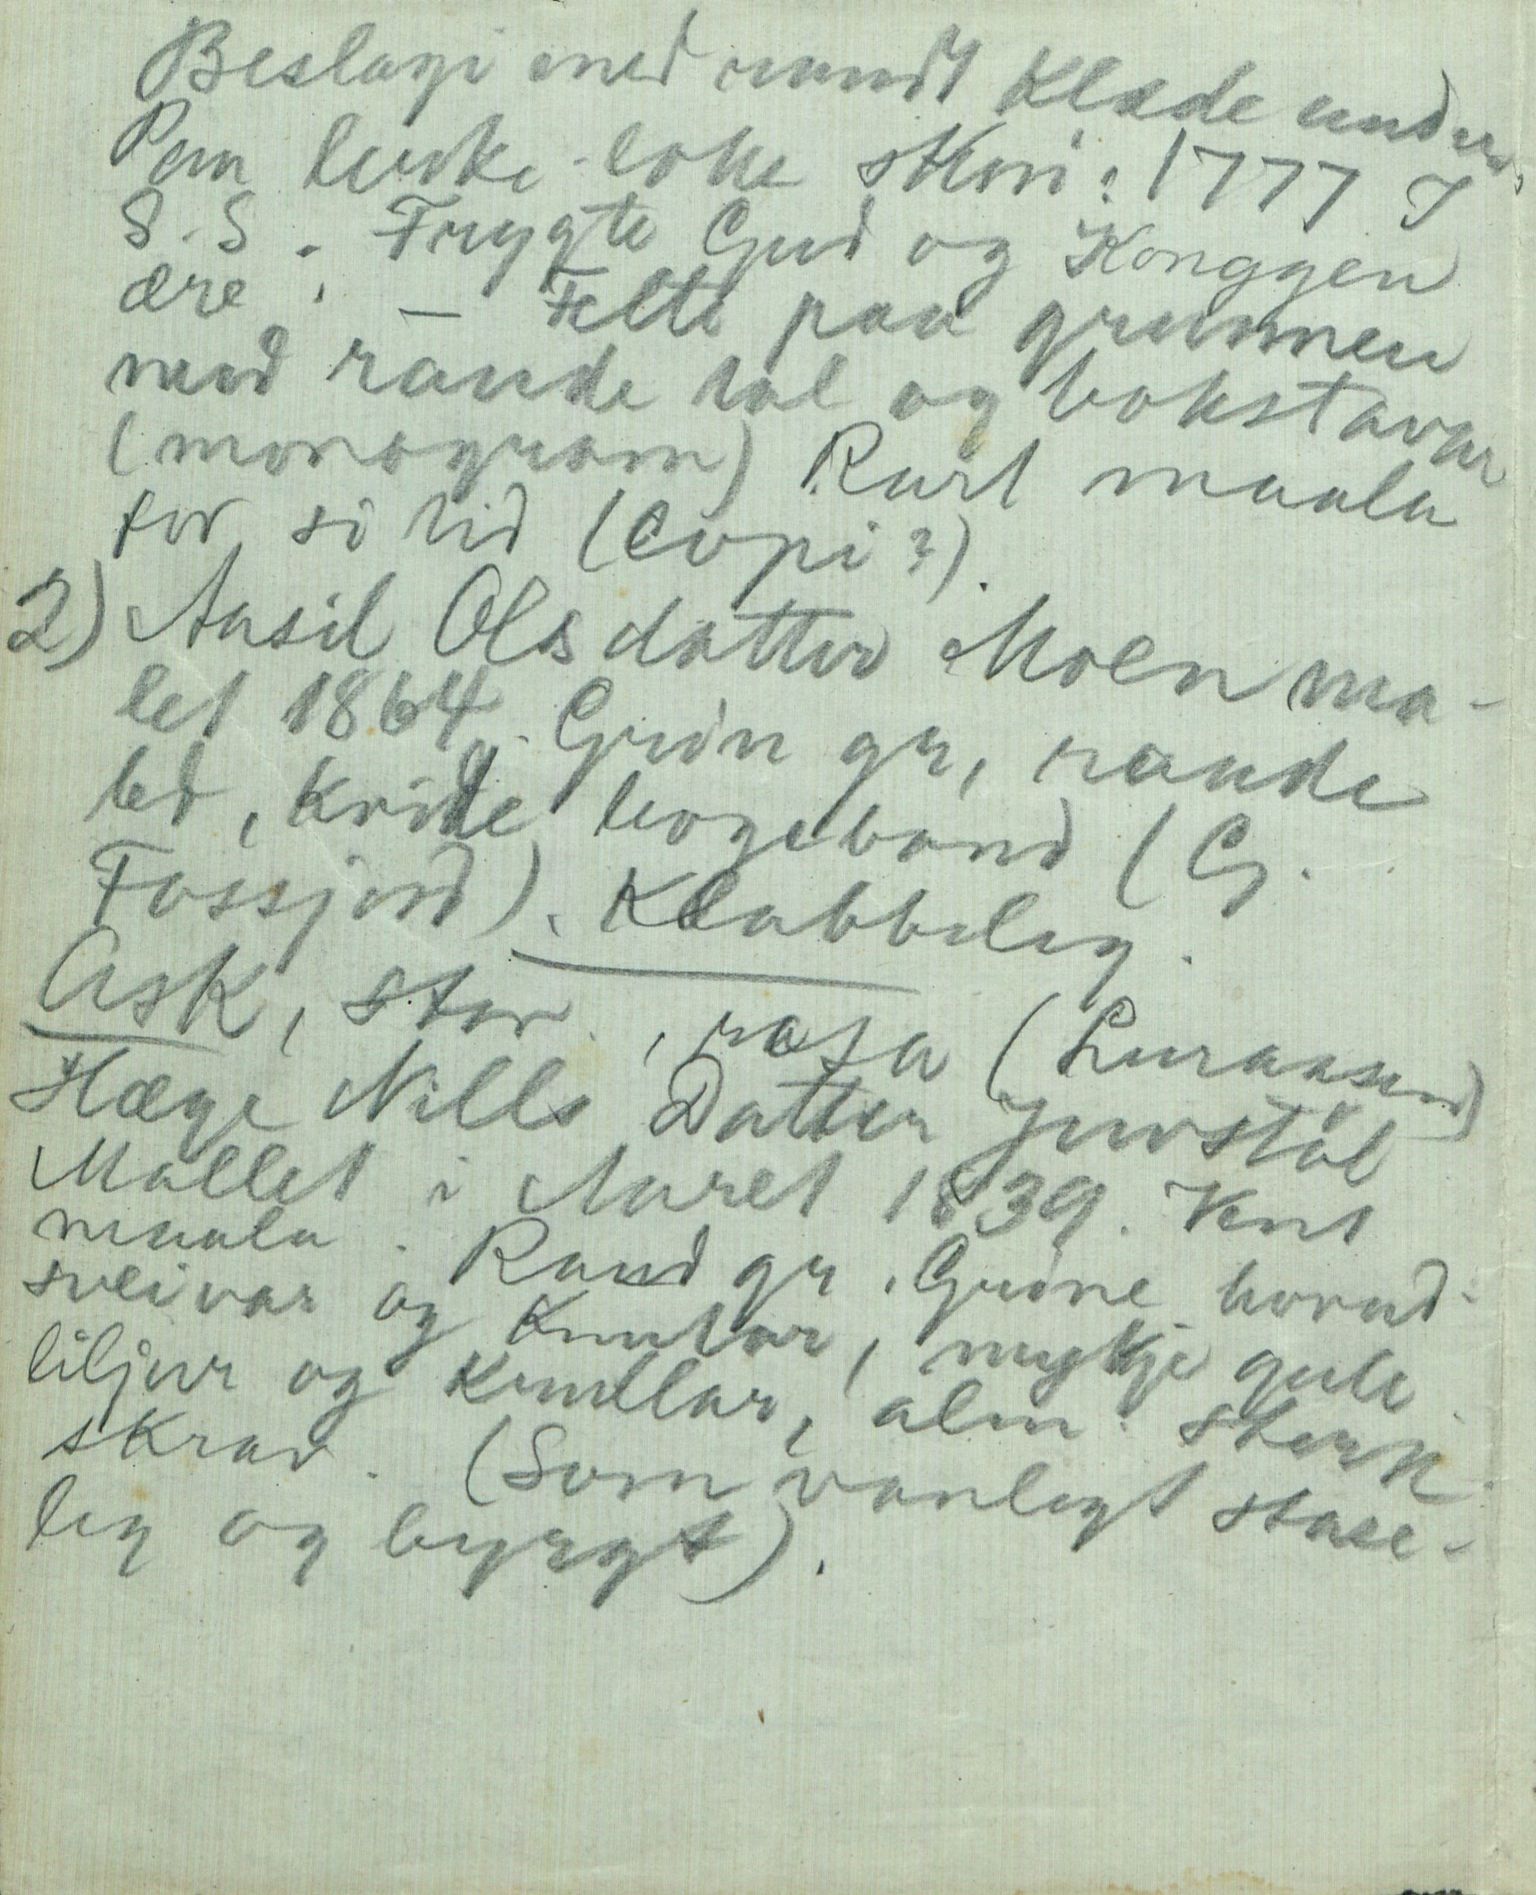 Beslagi med raudt Klæde under.
Paa lukke-loke skrivi: 1777 I
S. S. Frygte Gud og Konggen
ære. — Felti paa grunnen
med raude tal og bokstavar
(monogram) Rart maala
for si tid (Copi?).
2) Aasil Olsdatter Moen ma-
let 1864. Grøn gr, raude
bd, kvite bogeband (G.
Fossjord). Klabbeleg.
Ask, stor, rosa (Luraasen)
Hæge Nills Datter Juvstøl
Mallet i Aaret 1839. Vent
maala. Raud gr. Grøne hovud-
sveivar og Knutar, mykje gule
liljur og krullar, alm. sterk
skrav. (Som vanlegt stase-
leg og byrgt).